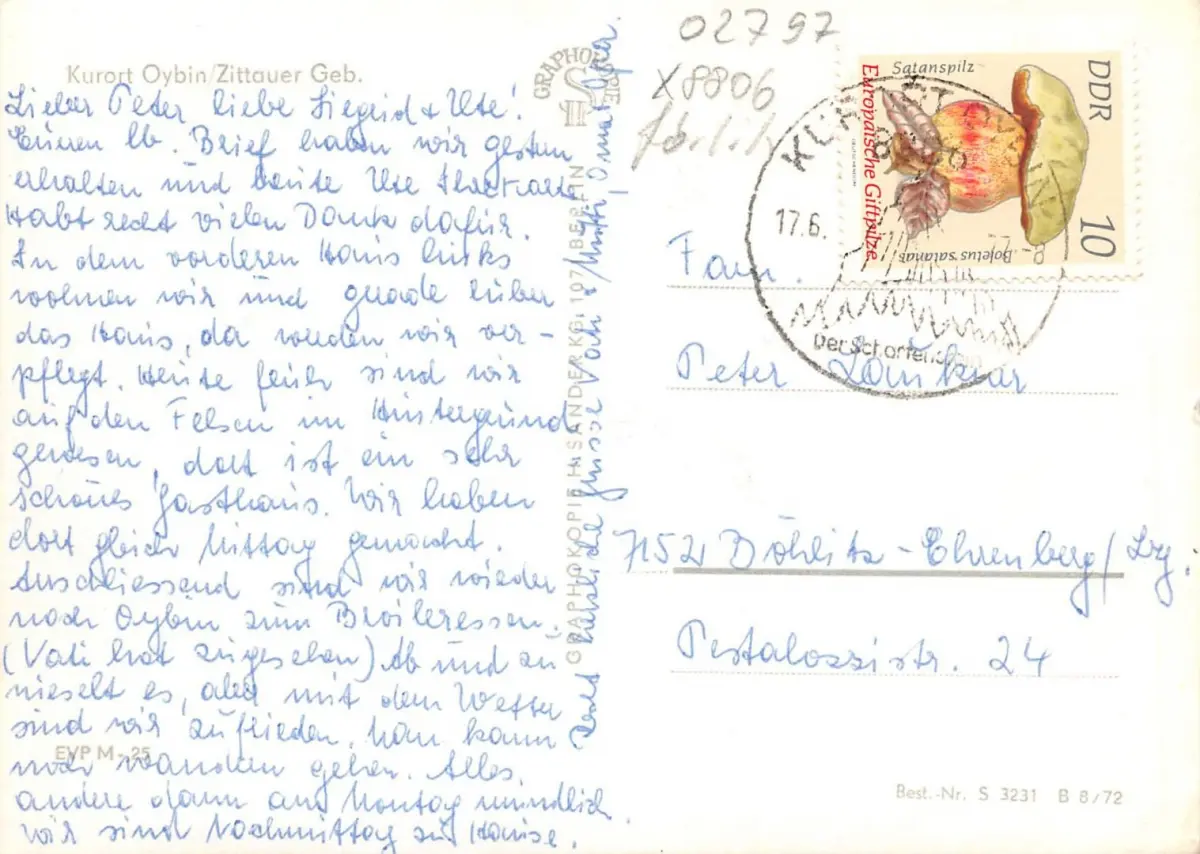 Kurort Oybin/Zittauer Geb.
Lieber Peter liebe Siegrid & Ute!
Eueren lb. Brief haben wir gestern
erhalten und heute Ute
Habt recht vielen Dank dafür.
In dem vorderen Haus links
wohnen wir und gerade über
das Haus, da werden wir ver-
pflegt. Heute früh sind wir
auf den Felsen im Hintergrund
gewesen, dort ist ein sehr
schönes Gasthaus. Wir haben
dort gleich Mittag gemacht.
Anschliessend sind wir wieder
nach Oybin zum Broileressen.
(Vati hat zugesehen) Ab und zu
nieselt es, aber mit dem Wetter
sind wir zufrieden. Man kann
noch wandern gehen. Alles
andere dann am Montag mündlich.
Wir sind Nachmittag zu Hause.
EVP M -,25
Recht herzliche Grüsse Vati & Mutti, Oma
GRAPHOKOPIE H. SANDER KG · 107 BERLIN
GRAPHOKOPIE
02797
X8806
17.6.
Der Scharfenstein
Satanspilz
Europäische Giftpilze
DDR
10
Boletus satanas
Fam.
Peter
7152 Böhlitz-Ehrenberg/Lzg.
Pestalozzistr. 24
Best.-Nr. S 3231 B 8/72